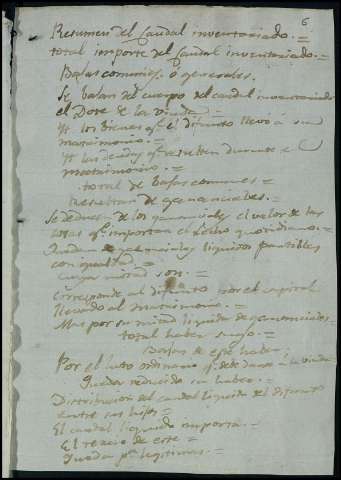 6
Resumen del Caudal inventoriado. =
total importe del Caudal inventoriado. =
Bajas comunes, ó generales.
Se bajan del cuerpo del caudal inventoriado
el Dote de la viuda =
It. los bienes qe. el difunto llevó á su
matrimonio. =
It. las deudas qe. resulten durante el
matrimonio. =
total de bajas comunes =
Resultan de gananciales. =
Se deducen de los gananciales el valor de las
cosas qe. importan el lecho quotidiano. =
Quedan de gananciales liquidos partibles
con igualdad =
Cuya mitad son. =
Corresponde al difunto por el capital
llevado al matrimonio. =
Mas por su mitad liquida de gananciales =
total haber suyo. =
Bajas de este haber,
Por el luto ordinario qe. debe darse a la viuda
Queda reducido su haber. =
Distribucion del caudal liquido del difunto
entre sus hijos =
El caudal liquido importa. =
El tercio de este =
Queda pa. legitimas. =